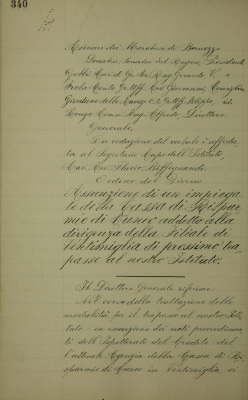 340
Asinari dei Marchesi di Bernezzo
Demetrio, Senatore del Regno, Presidente
Generale,
La redazione del verbale è affidata
al Segretario Capo dell'Istituto,
Ordine del Giorno
Assunzione di un impiega-
to della Cassa di Rispar-
mio di Cuneo addetto alla
dirigenza della Filiale di
Ventimiglia di prossimo tra-
passo al nostro Istituto.
Il Direttore Generale riferisce:
Nel corso della trattazione delle
modalità per il trapasso al nostro Isti-
tuto - in esecuzione dei noti provvedimen-
ti dell'Ispettorato del Credito - del-
l'attuale Agenzia della Cassa di Ri-
sparmio di Cuneo in Ventimiglia, si